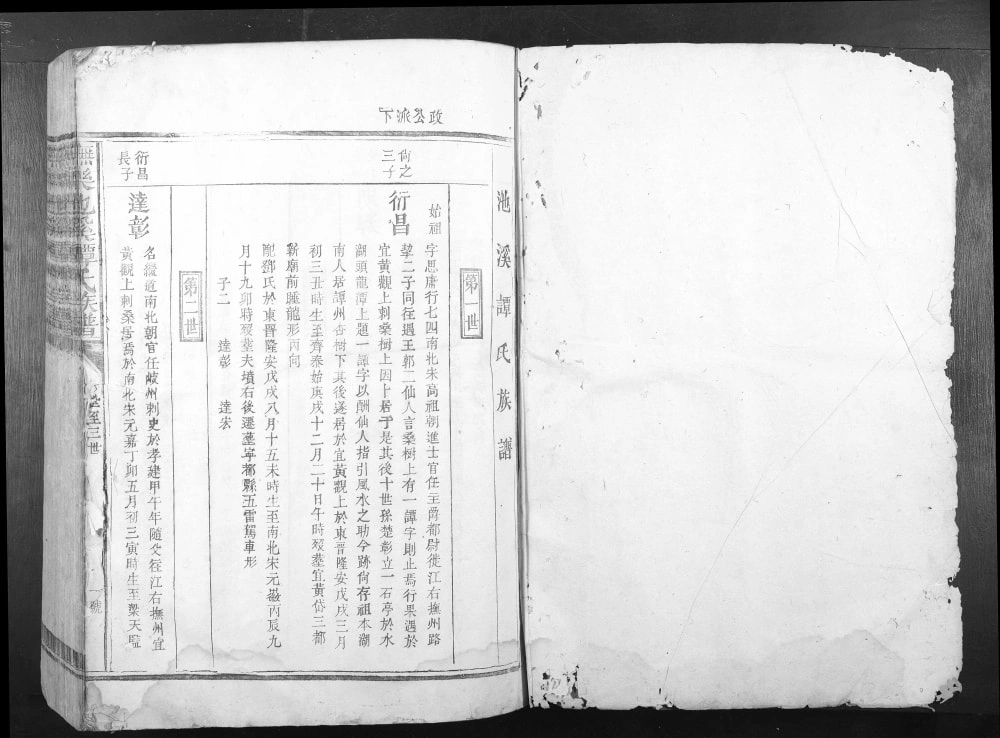 政公派下
池溪譚氏族譜
第一世
尙之
三子
始祖
衍昌
字思庸行七四南北朱高祖朝進士官任主爵都尉徙江右撫州路
挈二子同徃遇王郭二仙人言桑樹上有一譚字則止焉行果遇於
宜黃觀上刺桑樹上因卜居于是其後十世孫楚彰立一石亭於水
湖頭龍潭上題一譚字以酬仙人指引風水之助今跡尙存祖本湖
南人居譚州杏樹下其後遂居於宜黃觀上於東晉隆安戊戌三月
初三丑時生至齊泰始庚戌十二月二十日午時歿塟宜黃岱三都
新廟前睡龍形丙向
配鄧氏於東晉隆安戊戌八月十五未時生至南北宋元嶶丙辰九
月十九卯時歿塟夫墳右後遷塟寧都縣五雷駕車形
子二 達彰 達宏
第二世
衍昌
長子
達彰
名 道南北朝官任 州刺史於孝建甲午年隨父徃江右撫州宜
黃觀上刺桑居焉於南北宋元嘉丁卯五月初三寅時生至梁天監
池溪譚氏族譜
至三世
一號